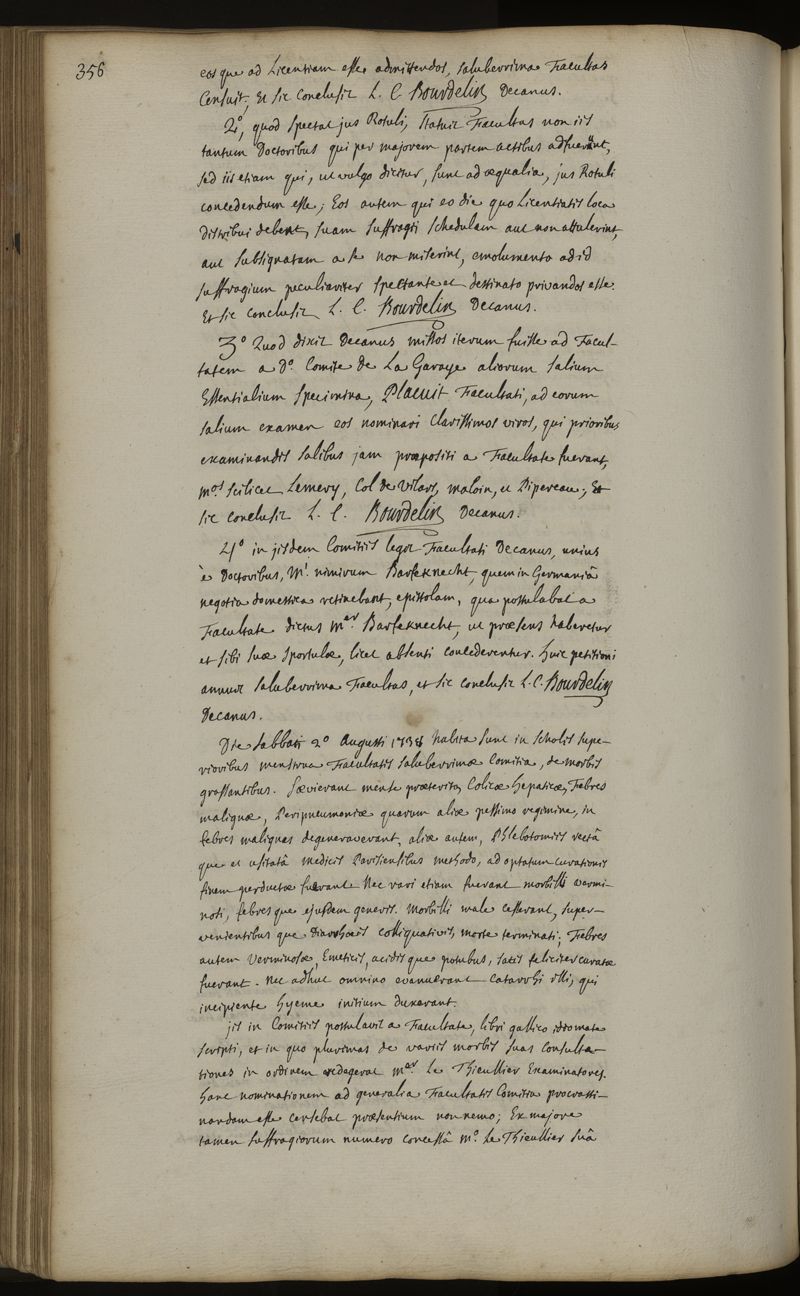 356
eosque ad Licentiam esse admittendos, saluberrima Facultas
Censuit, Et sic Conclusit L. C. Bourdelin Decanus.
2°, quod spectat jus Rotuli, statuit Facultas non iis
tantum Doctoribus qui per majorem partem actibus adfuerunt,
sed iis etiam qui, ut vulgo dicitur, sunt ad æqualia, jus Rotuli
concedendum esse; Eos autem qui eo die quo Licentiatis loca
distribui debent, suam suffragii schedulam aut non attulerint,
aut subsignatam a se non miserint, emolumento ad id
suffragium peculiariter spectante et destinato privandos esse.
Et sic conclusit L. C. Bourdelin Decanus.
3° Quod dixit Decanus missos iterum fuisse ad Facul-
tatem a D°. Comite de La Garaye aliorum salium
Essentialium specimina, Placuit Facultati, ad eorum
salium examen eos nominari Clarissimos viros, qui prioribus
examinandis salibus jam præpositi a Facultate fuerant,
mos scilicet Lemery, Col de Vilars, maloin, et Pipereau; Et
sic conclusit L. C. Bourdelin Decanus.
4° in jisdem Comitiis legit Facultati Decanus, unius
è Doctoribus, Mi. nimirum Barfeknecht, quem in Germaniâ
negotia domestica retinebant, epistolam, qua postulabat a
Facultate dictus mer Barfeknecht, ut præsens haberetur
et sibi suæ sportulæ, licet absenti concederentur. huic petitioni
annuit saluberrima Facultas, et sic conclusit L. C. Bourdelin
Decanus.
Die sabbati 2° Augusti 1738 habita sunt in scholis supe-
rioribus menstrua Facultatis saluberrimæ Comitia, de morbis
grassantibus. Sævierant mense præterito, Colicæ hepaticæ, Febres
malignæ, Peripneumoniæ quarum aliæ pessimo regimine, in
febres malignas degeneraverant, aliæ autem, Phlebotomiis rectâ
que et usitatâ medicis Parisiensibus methodo, ad optatum curationis
finem perductæ fuerant. Nec rari etiam fuerant morbilli vermi-
nosi, febresque ejusdem generis. Morbilli male cesserant, super-
venientibus que diarrhoeis colliquativis, morte terminati; Febres
autem Verminosæ, Emeticis, acidisque potubus, satis feliciter curatæ
fuerant. Nec adhuc omnino evanuerant Catarrhi illi, qui
incipiente hyeme initium duxerant.
jis in Comitiis postulavit a Facultate, libri gallico idiomate
scripti, et in quo plurimas de variis morbis suas consulta-
tiones in ordinem redegerat mer. Le Thieullier Examinatores.
hanc nominationem ad generalia Facultatis Comitia procrasti-
nandam esse censebat præsentium non nemo; Ex majore
tamen suffragiorum numero concessâ m°. Le Thieullier suâ